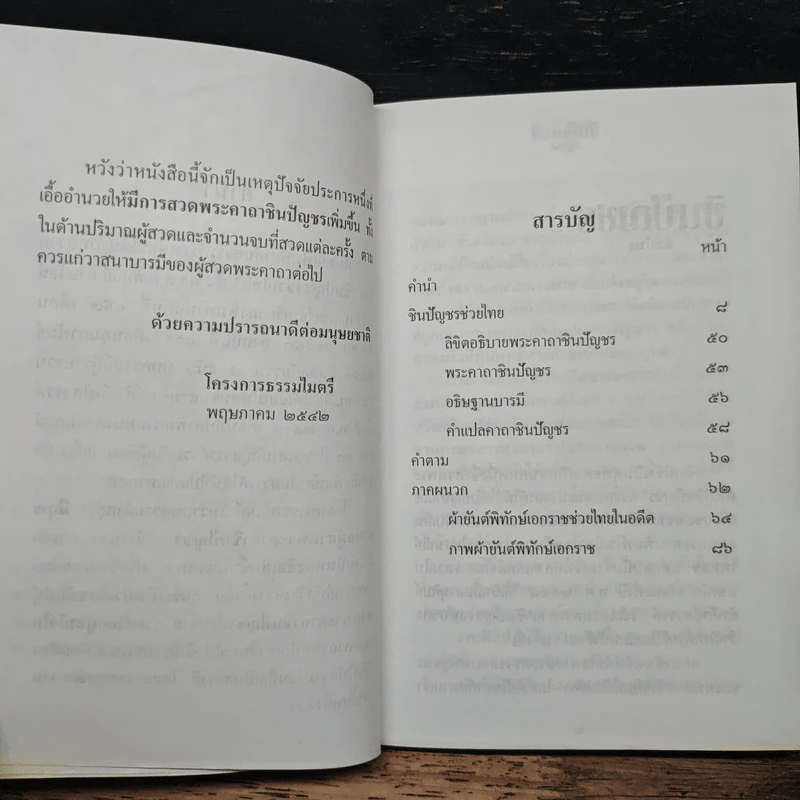 หวังว่าหนังสือนี้จักเป็นเหตุปัจจัยประการหนึ่งที่
เอื้ออำนวยให้มีการสวดพระคาถาชินปัญชรเพิ่มขึ้น ทั้ง
ในด้านปริมาณผู้สวดและจำนวนจบที่สวดแต่ละครั้ง ตาม
ควรแก่วาสนาบารมีของผู้สวดพระคาถาต่อไป
ด้วยความปรารถนาดีต่อมนุษยชาติ
โครงการธรรมไมตรี
พฤษภาคม ๒๕๔๒
สารบัญ
หน้า
คำนำ
ชินปัญชรช่วยไทย ๘
ลิขิตอธิบายพระคาถาชินปัญชร ๕๐
พระคาถาชินปัญชร ๕๓
อธิษฐานบารมี ๕๖
คำแปลคาถาชินปัญชร ๕๘
คำตาม ๖๑
ภาคผนวก ๖๒
ผ้ายันต์พิทักษ์เอกราชช่วยไทยในอดีต ๖๔
ภาพผ้ายันต์พิทักษ์เอกราช ๘๖